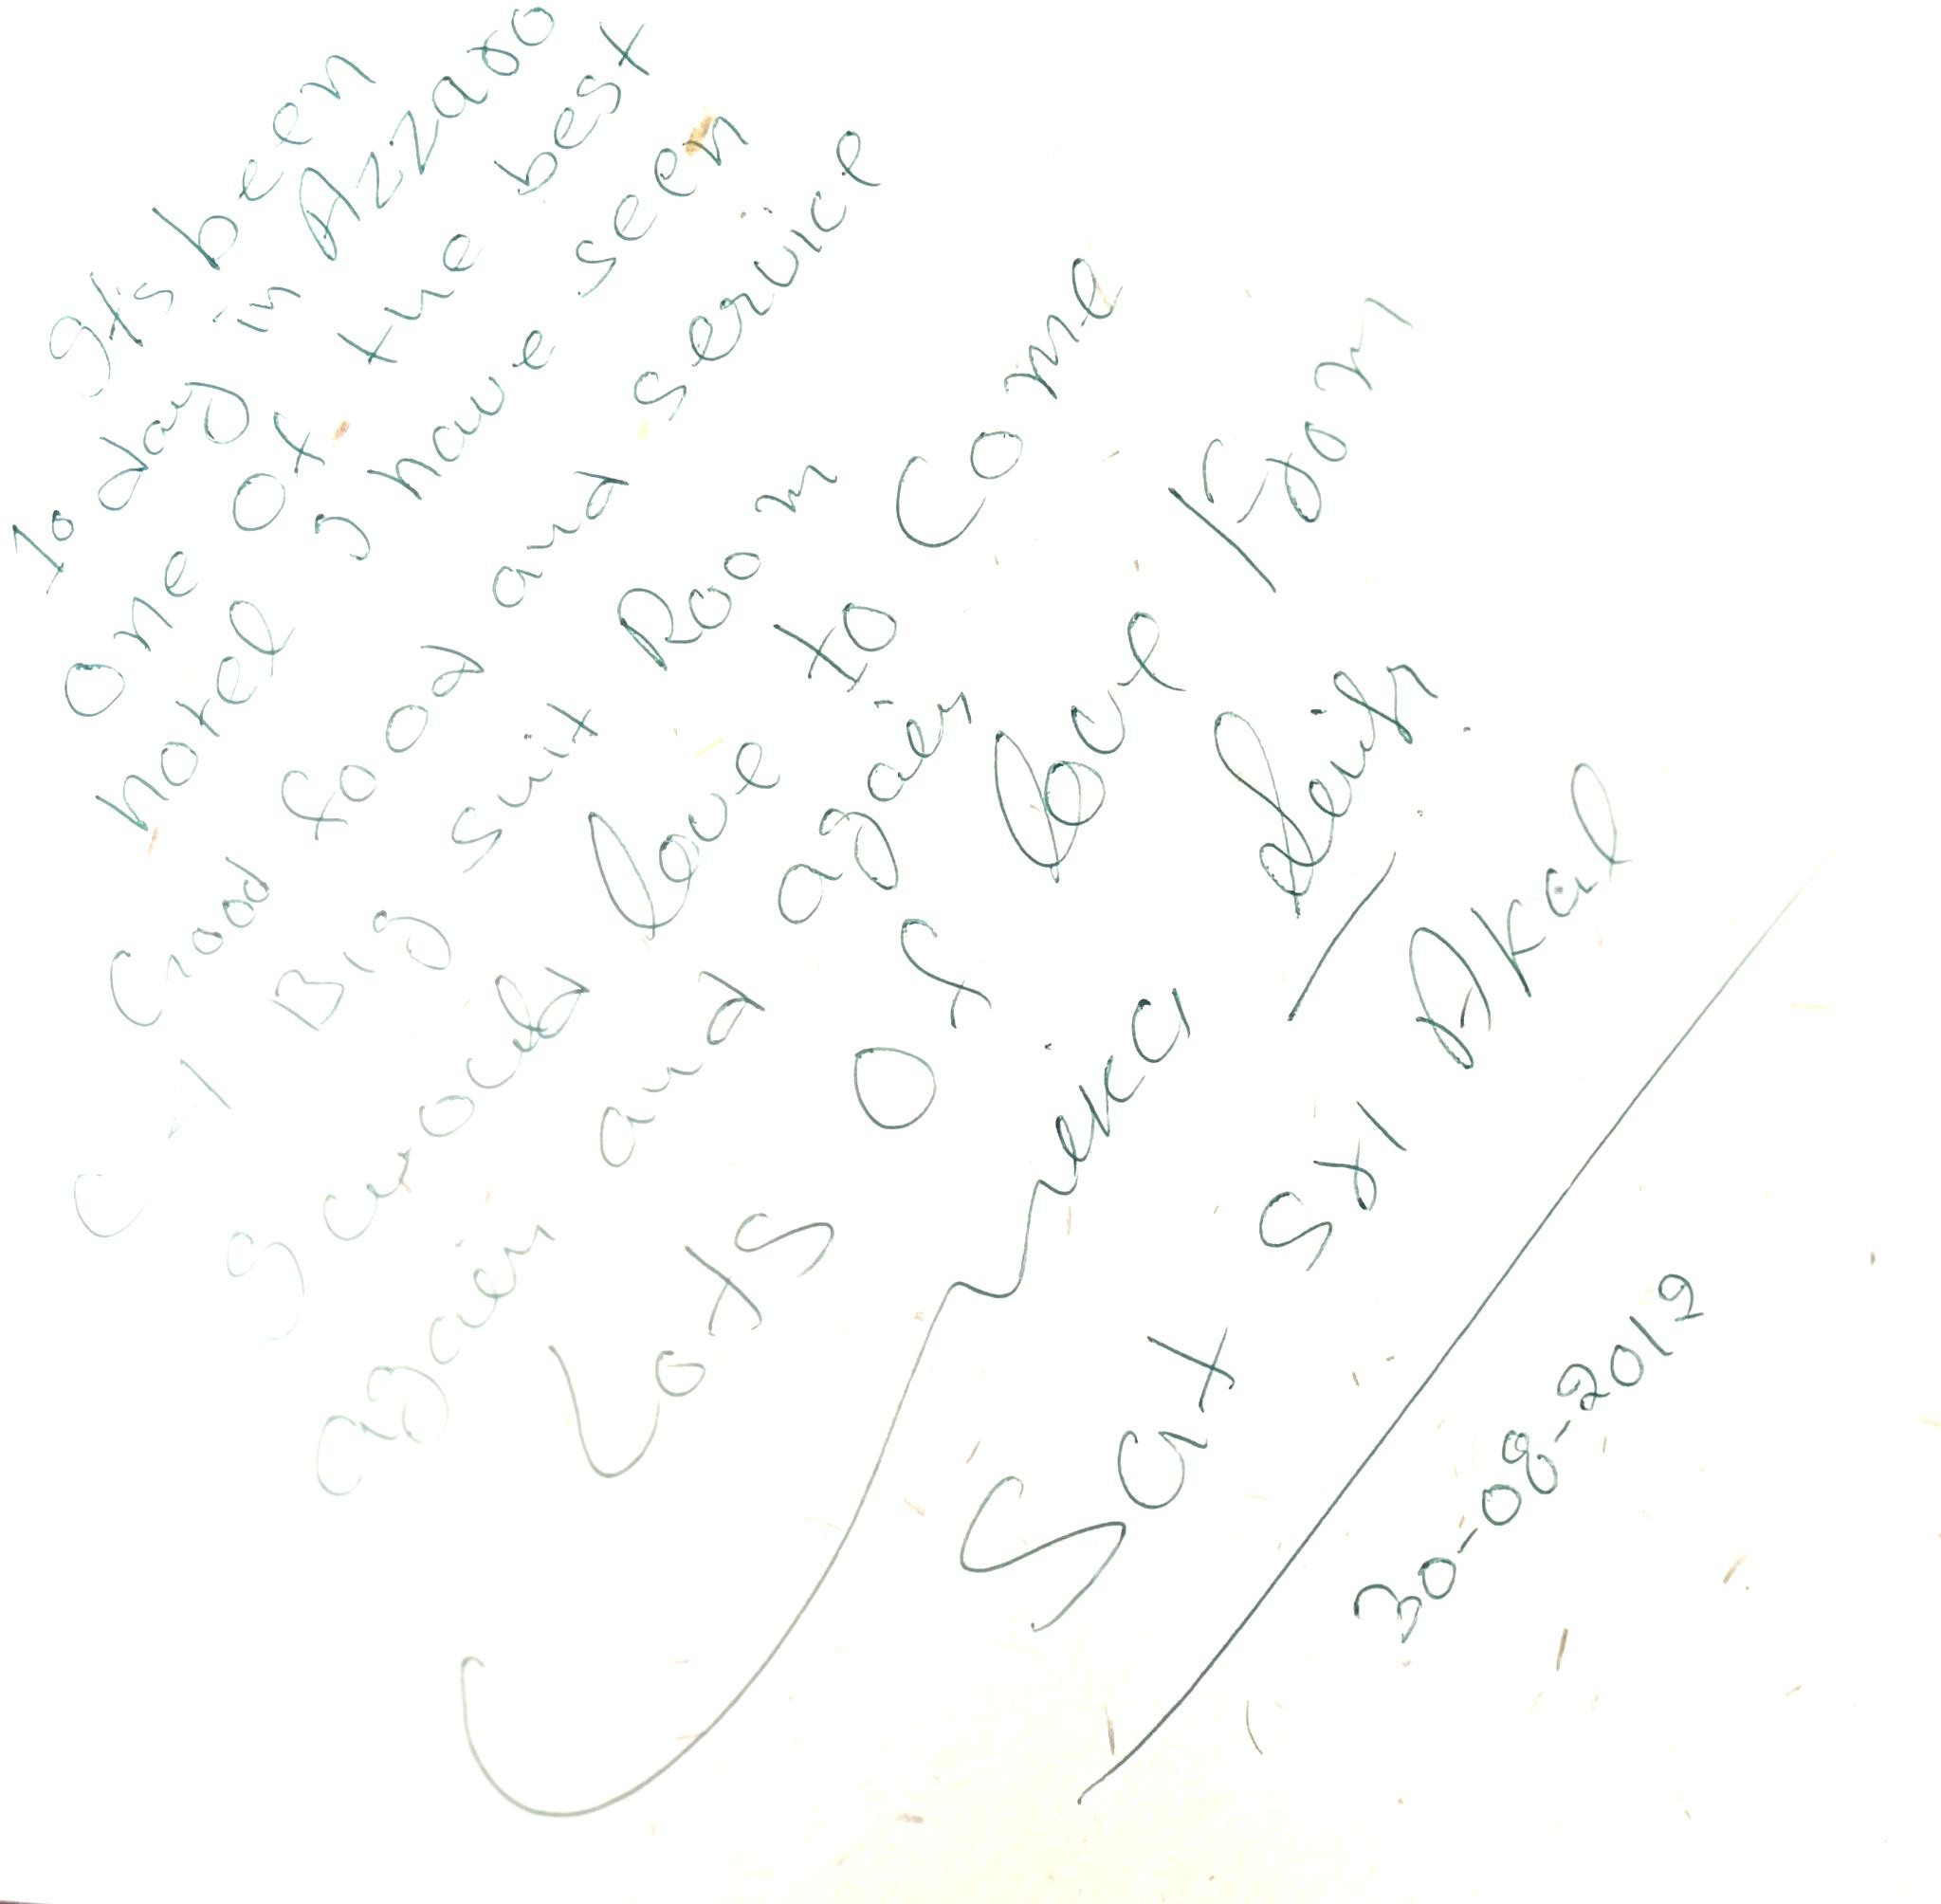 It's been
to day in Azzaro
one of the best
hotel I have seen
Good food and service
Big suit Room
I would love to come
again and again
Lots Of love from
Sat SRI AKal
30-08-2019